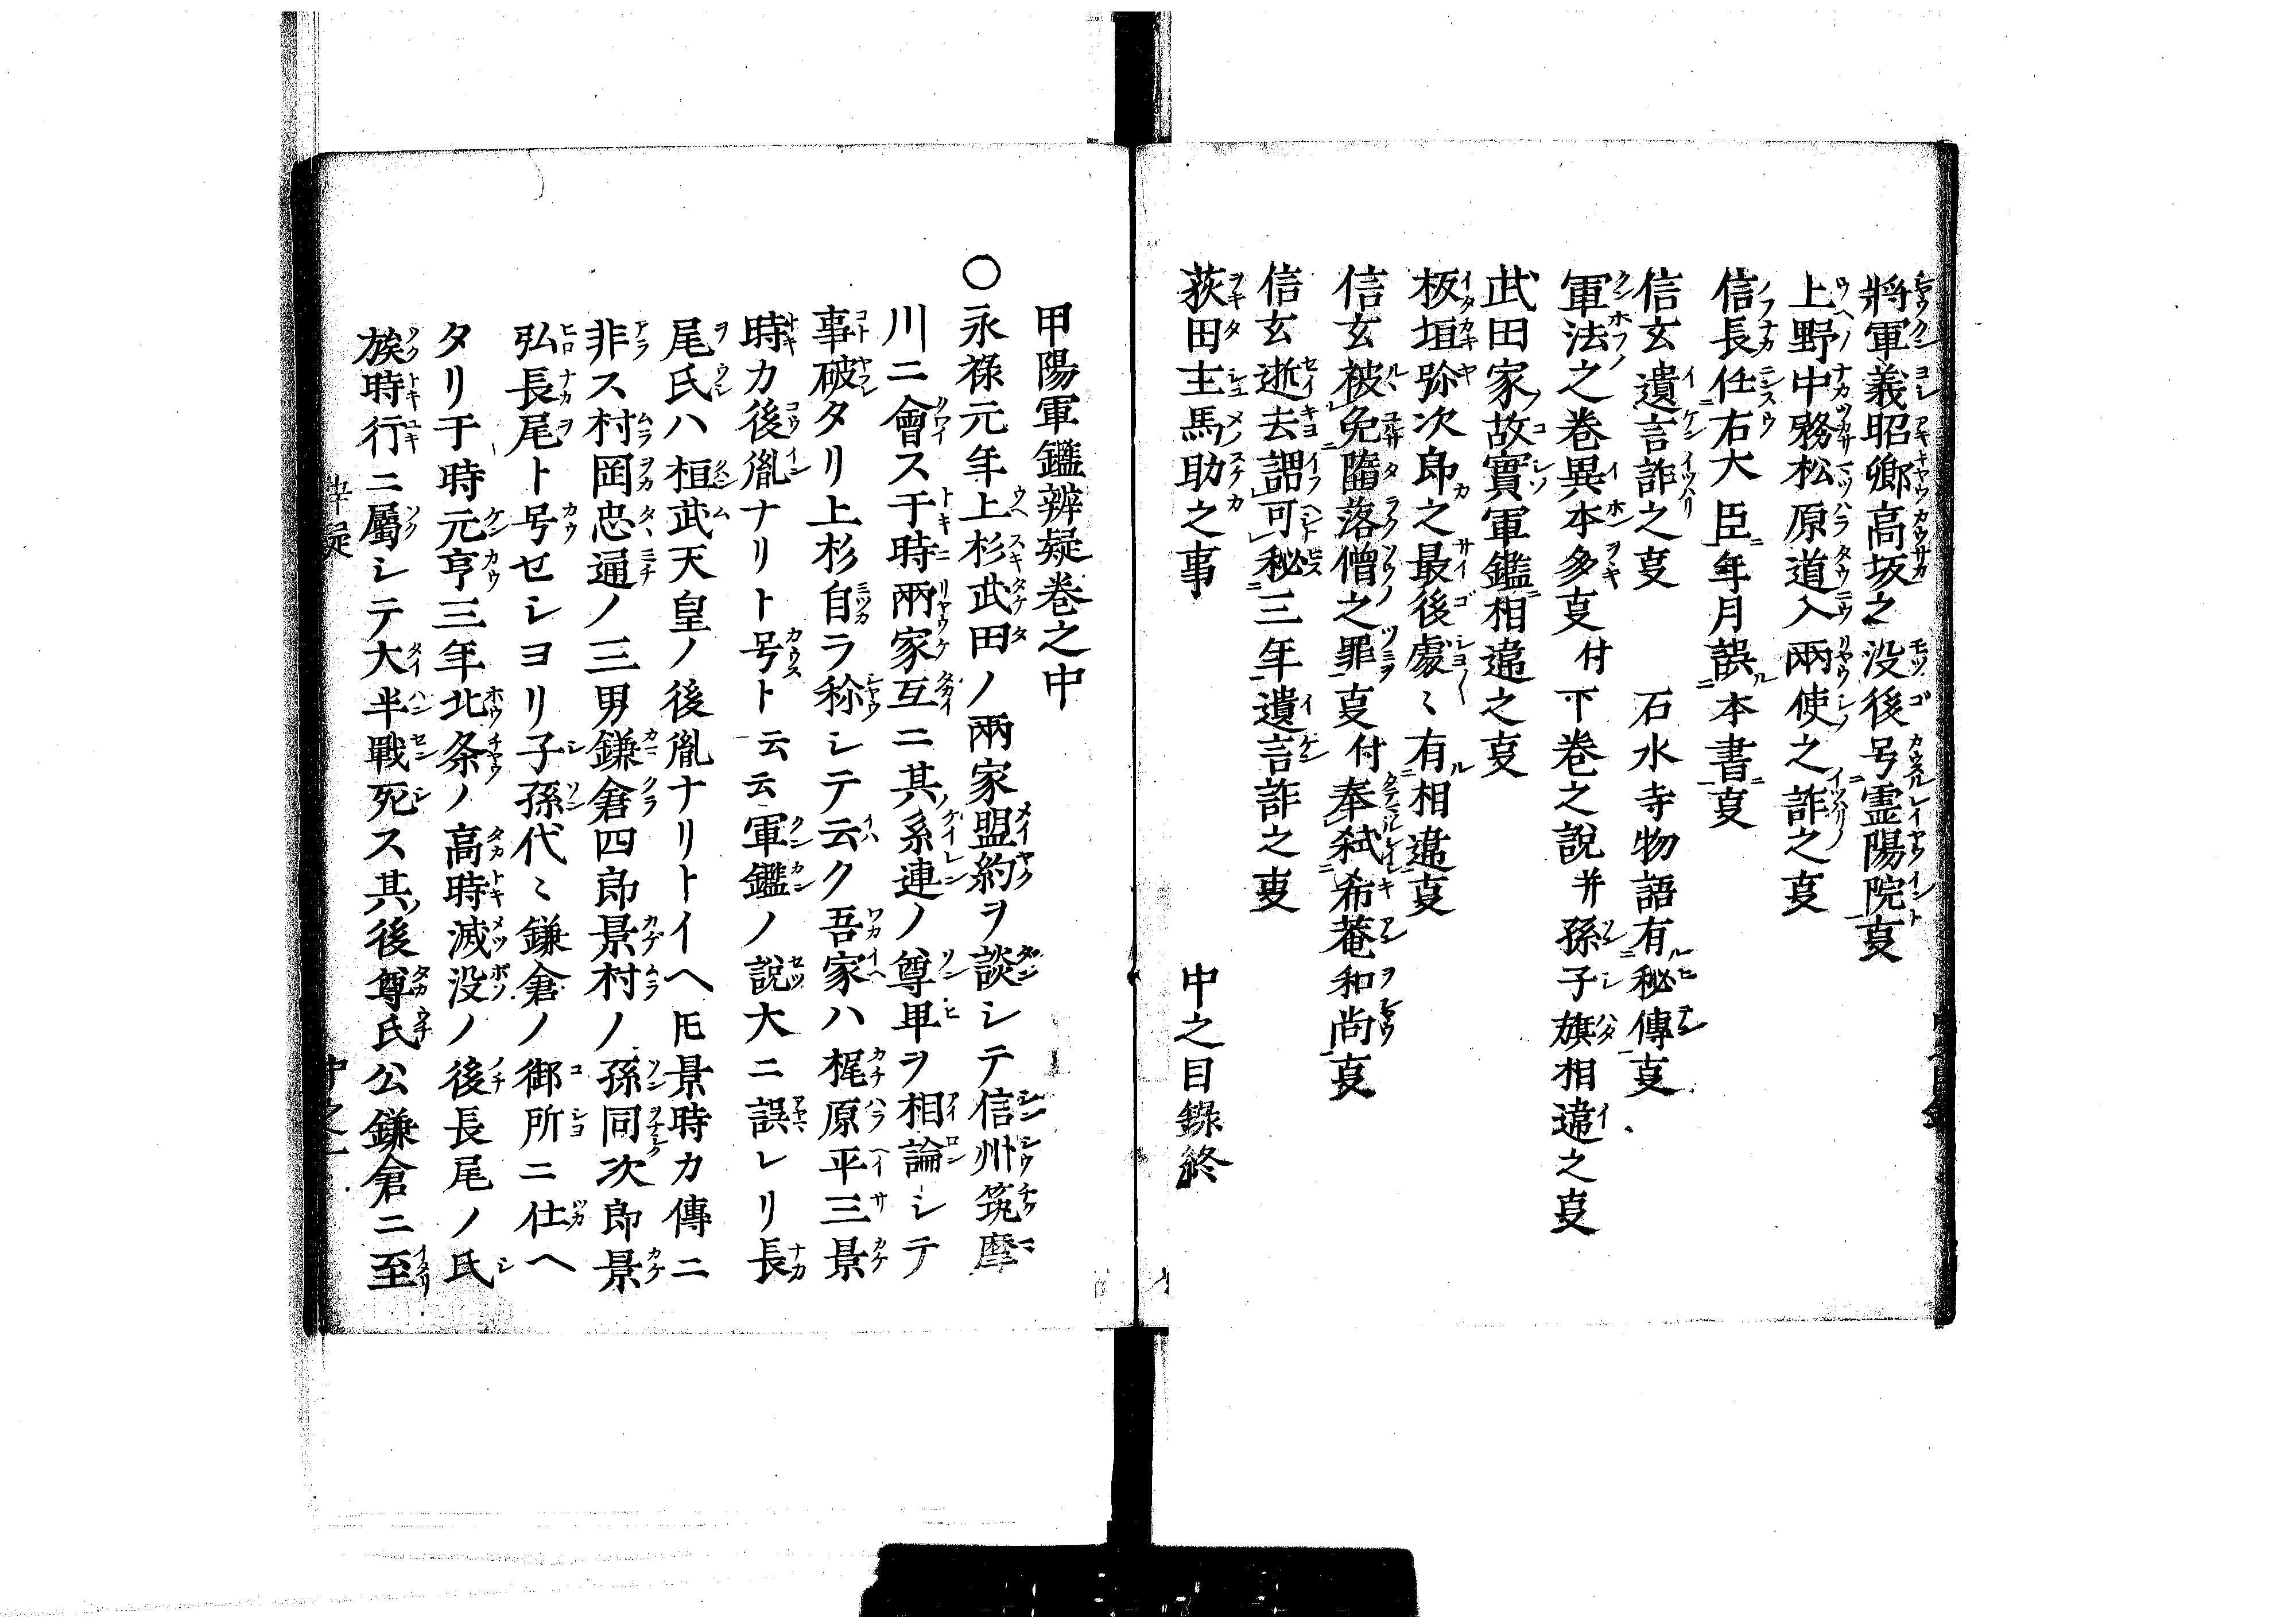 將軍義昭卿高坂之没後号霊陽院㕝
上野中務松原道入兩使之詐之㕝
信長任右大臣年月誤本書㕝
信玄遺言詐之㕝　石水寺物語有秘傳㕝
軍法之巻異本多㕝付下巻之說并孫子旗相違之㕝
武田家故實軍鑑相違之㕝
板垣弥次郎之最後處〻有相違㕝
信玄被免墮落僧之罪㕝付奉弑希菴和尚㕝
信玄逝去謂可秘三年遺言詐之㕝
荻田主馬助之事
中之目錄終
甲陽軍鑑辨疑巻之中
〇永祿元年上杉武田ノ兩家盟約ヲ談シテ信州筑摩
川ニ會ス于時兩家互ニ其系連ノ尊卑ヲ相論シテ
事破タリ上杉自ラ称シテ云ク吾家ハ梶原平三景
時カ後胤ナリト号ト云云軍鑑ノ說大ニ誤レリ長
尾氏ハ桓武天皇ノ後胤ナリトイヘ𪜈景時カ傳ニ
非ス村岡忠通ノ三男鎌倉四郎景村ノ孫同次郎景
弘長尾ト号セシヨリ子孫代〻鎌倉ノ御所ニ仕ヘ
タリ于時元亨三年北条ノ高時滅没ノ後長尾ノ氏
族時行ニ屬シテ大半戰死ス其後尊氏公鎌倉ニ至